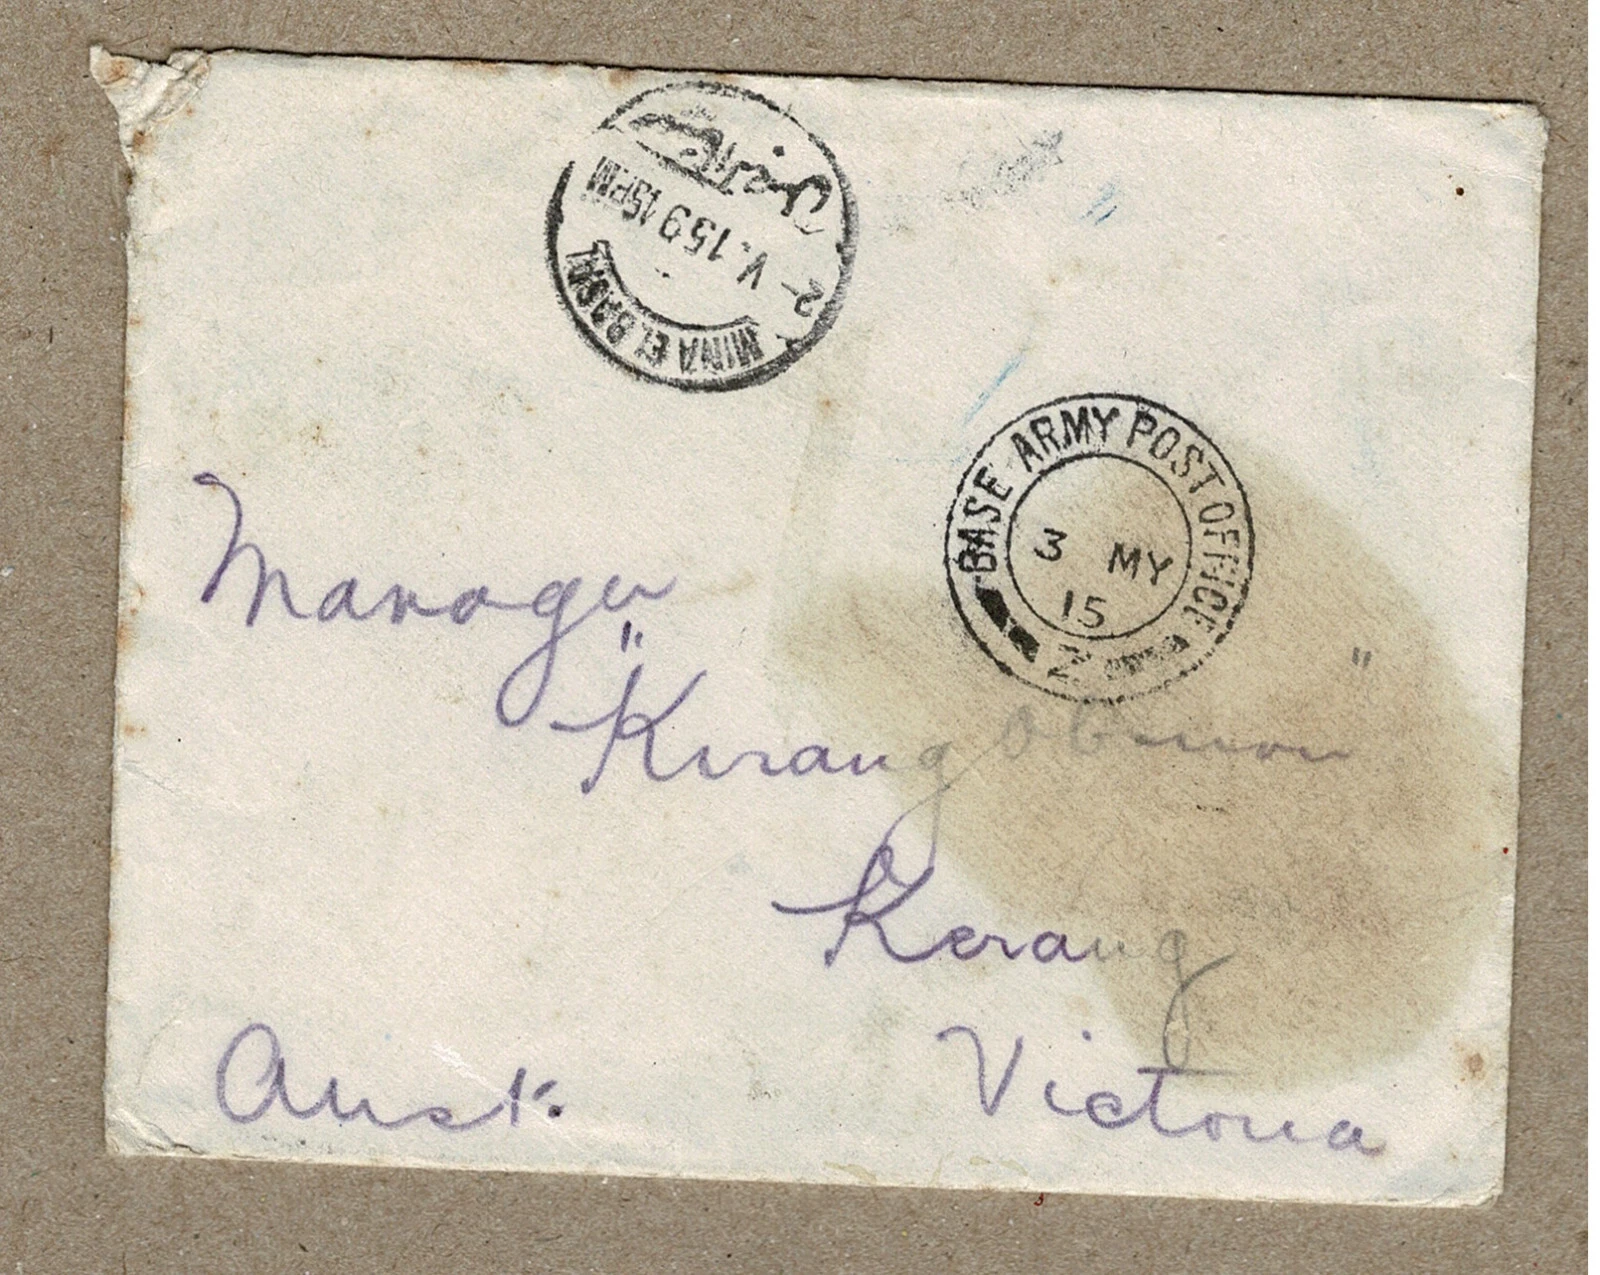 2 - V. 15 9 15PM
MINA EL BASAL
BASE ARMY POST OFFICE
3 MY
15
Z
Manager
"Kerang Observer"
Kerang
Victoria
Aust.